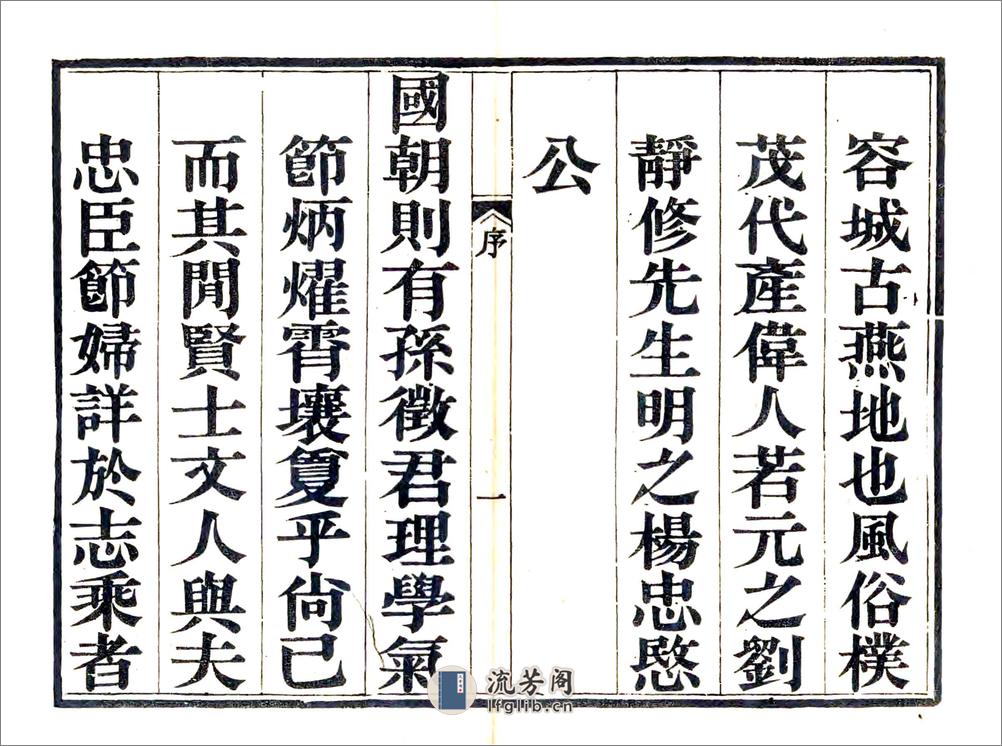 容城古燕地也風俗樸
茂代產偉人若元之劉
靜修先生明之楊忠愍
公
序
一
國朝則有孫徵君理學氣
節炳燿霄壤敻乎尙已
而其閒賢士文人與夫
忠臣節婦詳於志乘者
流芳阁
lfglib.cn